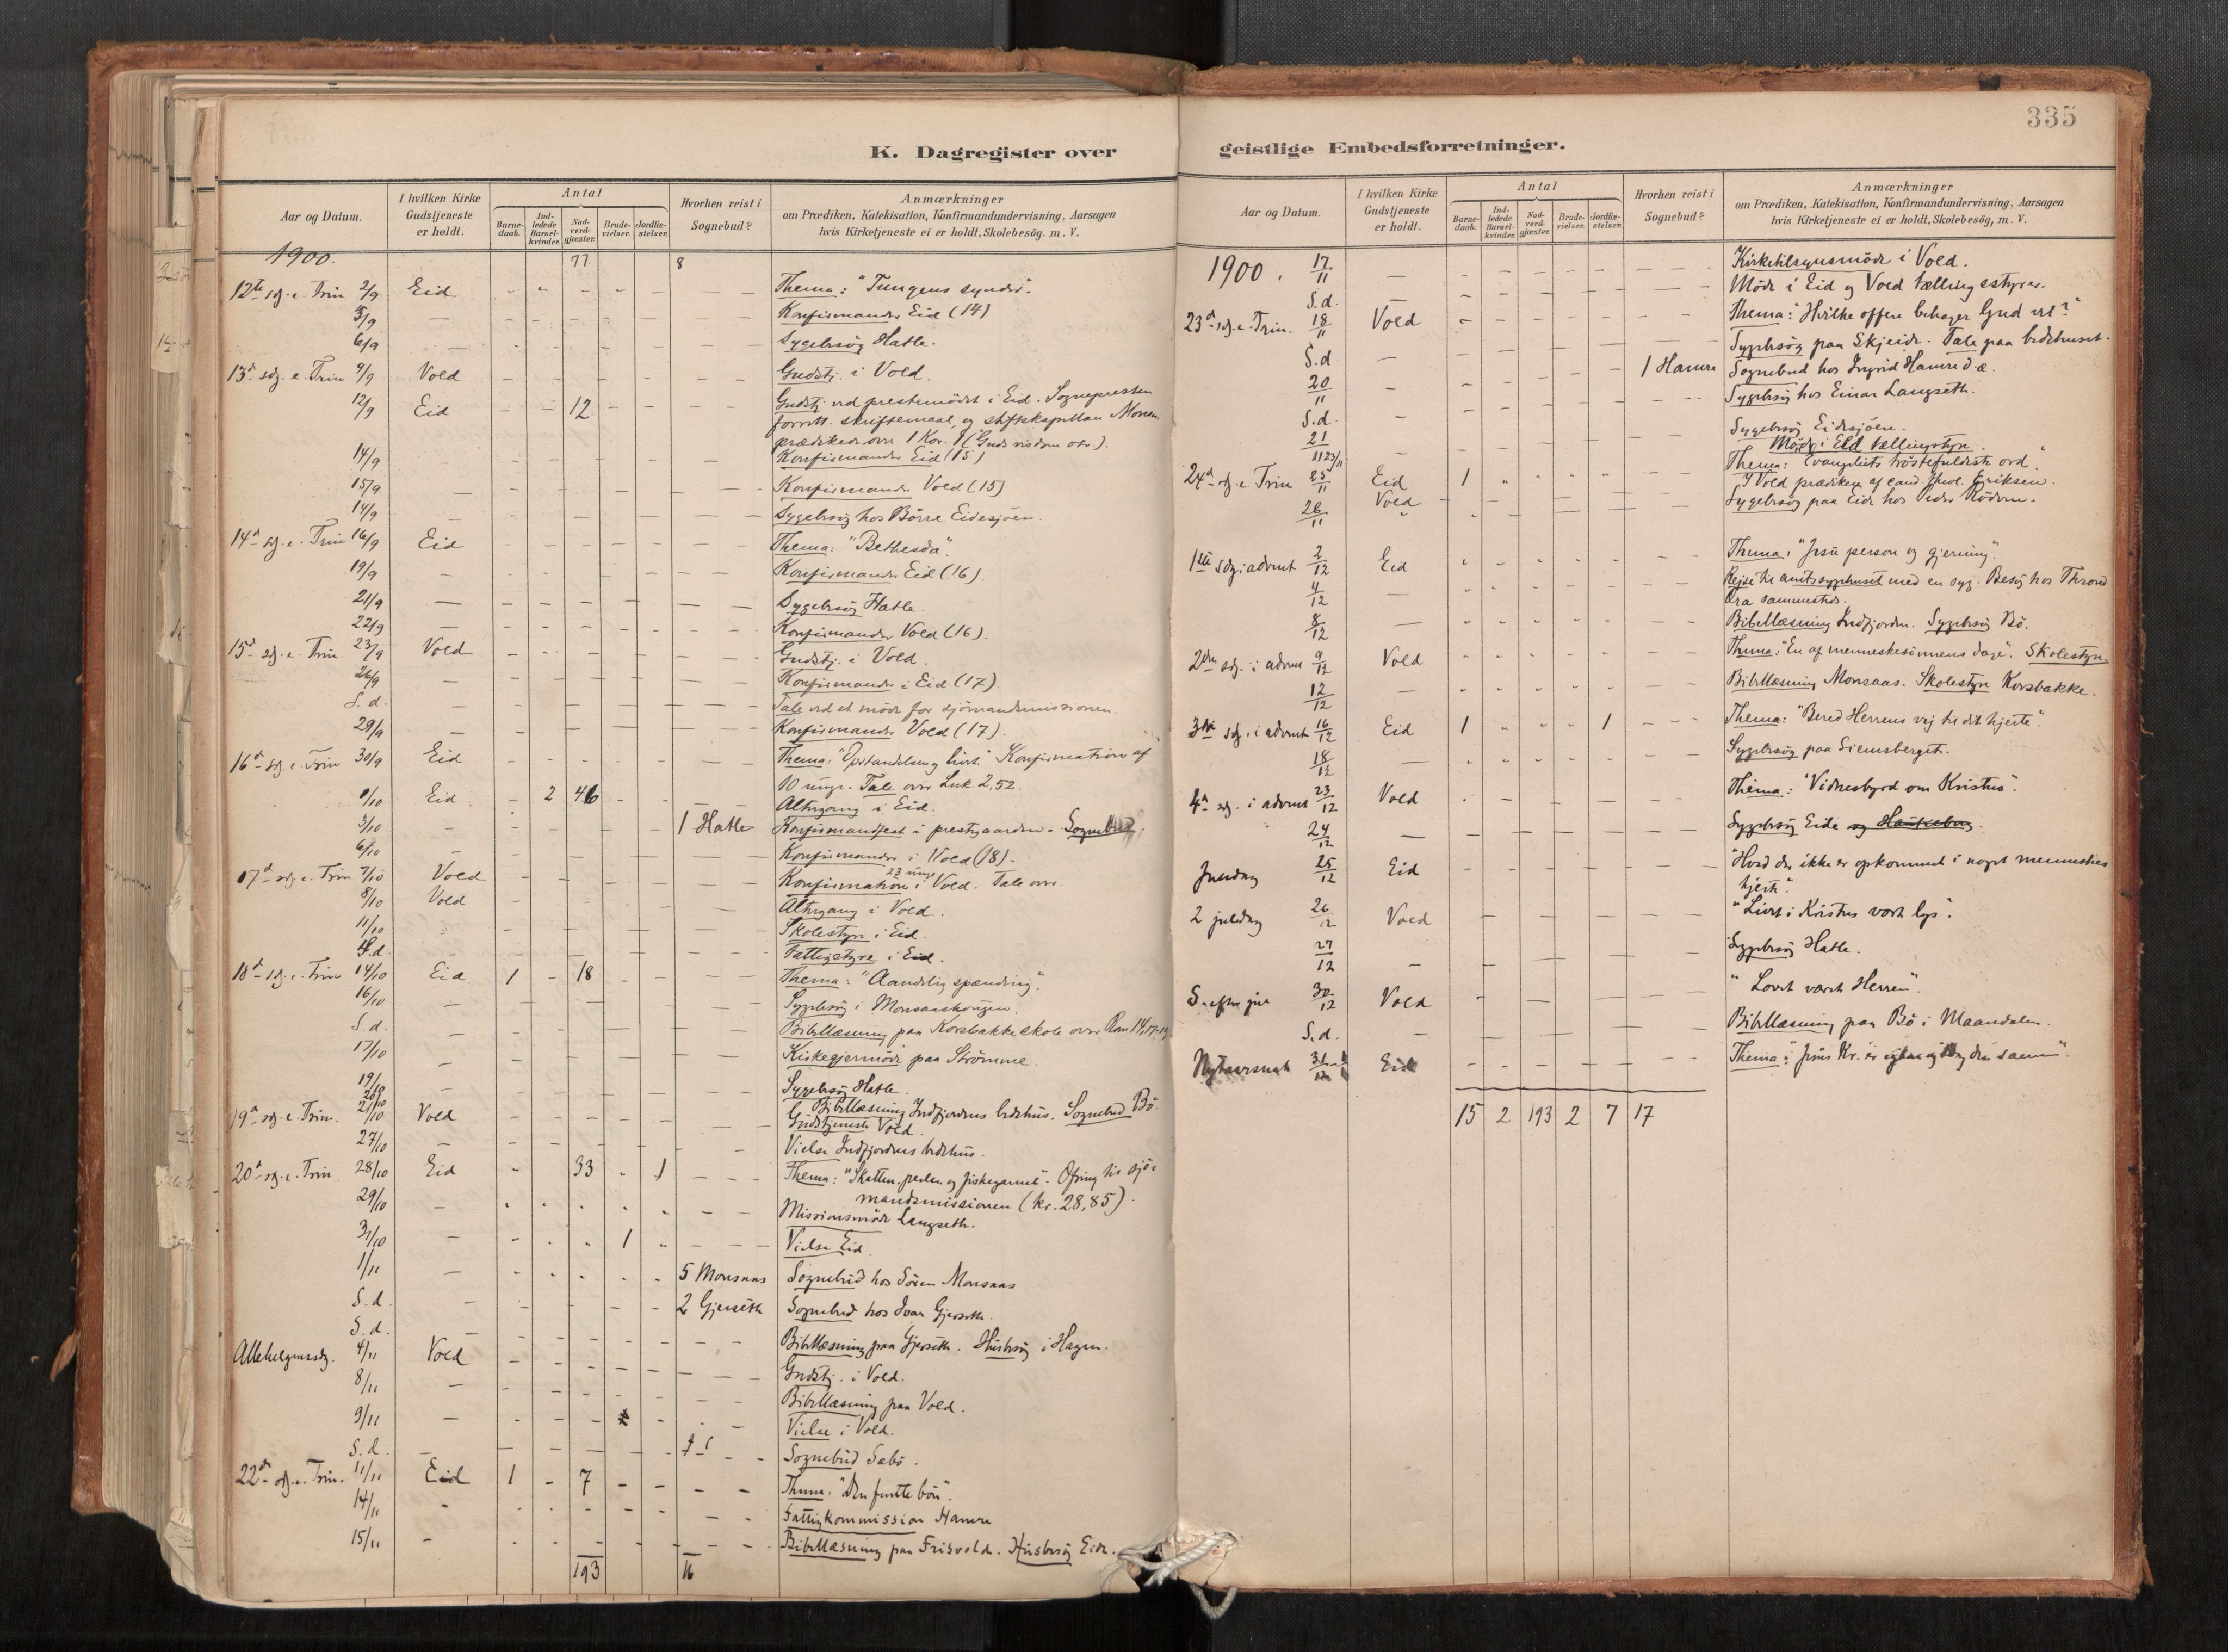 K. Dagregister over
Aar og Datum.
I hvilken Kirke Gudstjeneste er holdt.
Antal
Barne-daab.
Ind-ledede Barsel-kvinder.
Nad-verd-gjæster.
Brude-vielser.
Jordfæ-stelser.
Hvorhen reist i Sognebud?
Anmærkninger
om Prædiken, Katekisation, Konfirmandundervisning, Aarsagen
hvis Kirketjeneste ei er holdt, Skolebesög. m. V.
1900. 77 8
12te sdg. e. Trin 2/9 Eid Thema: "Tungens synder".
5/9 Konfirmander Eid (14)
6/9 Sygebesøg Hatle.
13d sdg. e. Trin 9/9 Vold Gudstj. i Vold.
12/9 Eid 12 Gudstj ved prestemödet i Eid. Sognepresten
forrett. skriftemaal, og stiftskapellan
prædikede over 1 Kor. 1 (Guds visdom osv.).
14/9 Konfirmander Eid (15)
15/9 Konfirmander Vold (15)
14/9 Sygebesøg hos Börre Eidesjöen.
14d sdg. e. Trin 16/9 Eid Thema: "Bethesda".
19/9 Konfirmander Eid (16).
21/9 Sygebesøg Hatle.
22/9 Konfirmander Vold (16).
15d sdg. e. Trin. 23/9 Vold Gudstj. i Vold.
26/9 Konfirmander i Eid (17)
S. d. Tale ved et möde for sjömandsmissionen.
29/9 Konfirmander Vold (17).
16d sdg. e. Trin 30/9 Eid Thema: "Opstandelsen og livet." Konfirmation af
10 unge. Tale over Luk. 2,52.
1/10 Eid 2 46 Altergang i Eid.
3/10 1 Hatle Konfirmandfest i prestgaarden. Sognebud
6/10 Konfirmander i Vold (18).
17d sdg. e. Trin 7/10 Vold Konfirmation i Vold. Tale over
23 unge
8/10 Vold Altergang i Vold.
11/10 Skolestyre i Eid.
S.d. Fattigstyre i Eid.
18d sdg. e. Trin 14/10 Eid 1 18 Thema: "Aandelig spænding".
16/10 Sygebesøg i Monsaashougen.
S. d. Bibellæsning paa Korsbakke skole over Rom 14,17-19
17/10 Kirkegjermöde paa Strömme.
19/10 Sygebesøg Hatle.
20/10 Bibellæsning Indfjordens bedehus. Sognebud Bö.
19d sdg. e. Trin. 21/10 Vold Gudstjeneste Vold.
27/10 Vielse Indfjordens bedehus.
20d sdg. e. Trin 28/10 Eid 33 1 Thema: "Skatten, perlen og fiskegarnet". Ofring til sjö-
mandsmissionen (kr. 28,85).
29/10 Missionsmöde Langseth.
31/10 1 Vielse Eid.
1/11 5 Monsaas Sognebud hos Sören Monsaas
S. d. 2 Gjerseth Sognebud hos Ivar Gjerseth.
S. d. Bibellæsning paa Gjerseth. Husbesøg i Hagen.
Allehelgensdg. 4/11 Vold Gudstj. i Vold.
8/11 Bibellæsning paa Vold.
9/11 Vielse i Vold.
S. d. Sognebud Sæbö.
22d sdg. e. Trin. 11/11 Eid 1 7 Thema: "Den femte bön".
14/11 Fattigkommission Hamre
15/11 Bibellæsning paa Frisvold. Husbesøg Eide.
193 16
335
geistlige Embedsforretninger.
Aar og Datum.
I hvilken Kirke Gudstjeneste er holdt.
Antal
Barne-daab.
Ind-ledede Barsel-kvinder.
Nad-verd-gjæster.
Brude-vielser.
Jordfæ-stelser.
Hvorhen reist i Sognebud?
Anmærkninger
om Prædiken, Katekisation, Konfirmandundervisning, Aarsagen
hvis Kirketjeneste ei er holdt, Skolebesög, m. V.
1900. 17/11 Kirketilsynsmöde i Vold.
S.d. Möde i Eid og Vold tællingsstyrer.
23d sdg. e. Trin. 18/11 Vold Thema: "Hvilke offere behager Gud vel?"
S.d Sygebesøg paa Skjeide. Tale paa bedehuset.
20/11 1 Hamre Sognebud hos Ingrid Hamre d.æ.
S.d. Sygebesøg hos Einar Langseth.
21/11 Sygebesøg Eidesjöen.
23/11 Möde i Eid tællingstyre.
24d sdg. e. Trin 25/11 Eid 1 Thema: Evangeliets trösterfuldeste ord".
Vold I Vold prædiken af cand. theol. Eriksen.
26/11 Sygebesøg paa Eide hos Peder Rödven.
1ste sdg. i advent 2/12 Eid Thema: "Jesu person og gjerning".
4/12 Rejse til amtssygehuset med en syg. Besøg hos Thrond
Øra sammesteds.
8/12 Bibellæsning Indfjorden. Sygebesøg Bö.
2den sdg. i advent 9/12 Vold Thema: "En af menneskesönnens dage". Skolestyre.
12/12 Bibellæsning Monsaas. Skolestyre Korsbakke.
3die sdg. i advent 16/12 Eid 1 1 Thema: "Bered Herrens vej til dit hjerte".
18/12 Sygebesøg paa Siemsberget.
4d sdg. i advent 23/12 Vold Thema: "Vidnesbyrd om Kristus".
24/12 Sygebesøg Eide og
Juledag 25/12 Eid "Hvad der ikke er opkommet i noget menneskes
hjerte".
2 juledag 26/12 Vold "Livet i Kristus vort lys".
27/12 Sygebesøg Hatle.
S. efter jul 30/12 Vold "Lovet været Herren".
S.d. Bibellæsning paa Bö i Maandalen.
Nytaarsnat 31/12 Eid Thema: "Jesus Kr. er igaar og idag den samme".
15 2 193 2 7 17